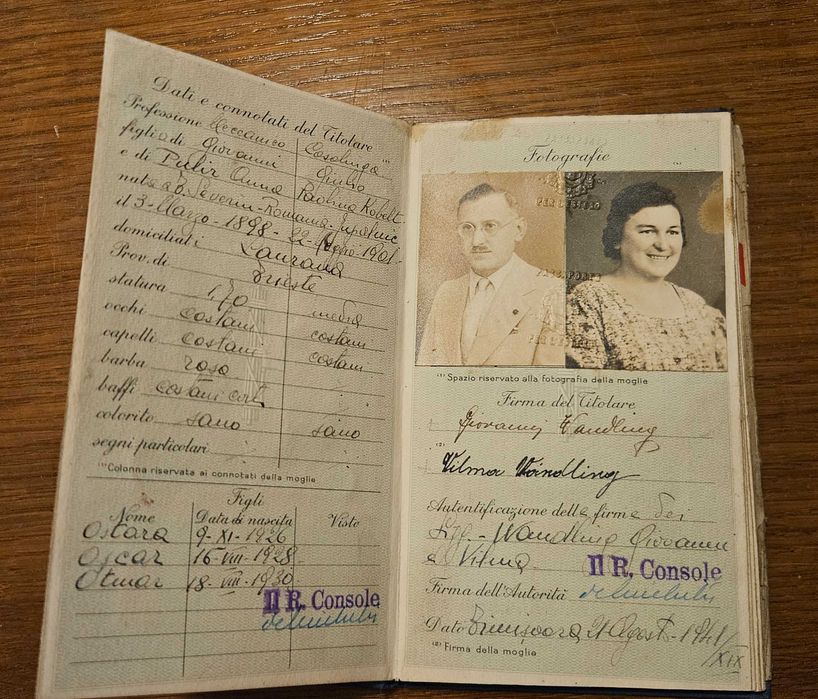 Dati e connotati del Titolare
Professione Meccanico Casalinga
figlio di Giovanni Giulio
e di Pulir Anna Paolina Kobelt
nato a D. Severin-Romania
il 3-Marzo-1898-22 1901-
domiciliati Laurana
Prov. di Trieste
statura 1,70 media
occhi castani castani
capelli castani castani
barba rasa
baffi castani
colorito sano sano
segni particolari
(1) Colonna riservata ai connotati della moglie
Figli
Nome Data di nascita Visto
Ostara 9-XI-1926
Oscar 16-VIII-1928
Otmar 18-VIII-1930
Il R. Console
Fotografie
PER L'ESTERO
(1) Spazio riservato alla fotografia della moglie
Firma del Titolare
Giovanni Wandling
(2)
Vilma Wandling
Autentificazione delle firme dei
Sigg. Wandling Giovanni
e Vilma
Il R. Console
Firma dell'Autorità
Dato Timişoara 21 Agost. 1941/XIX
(2) Firma della moglie